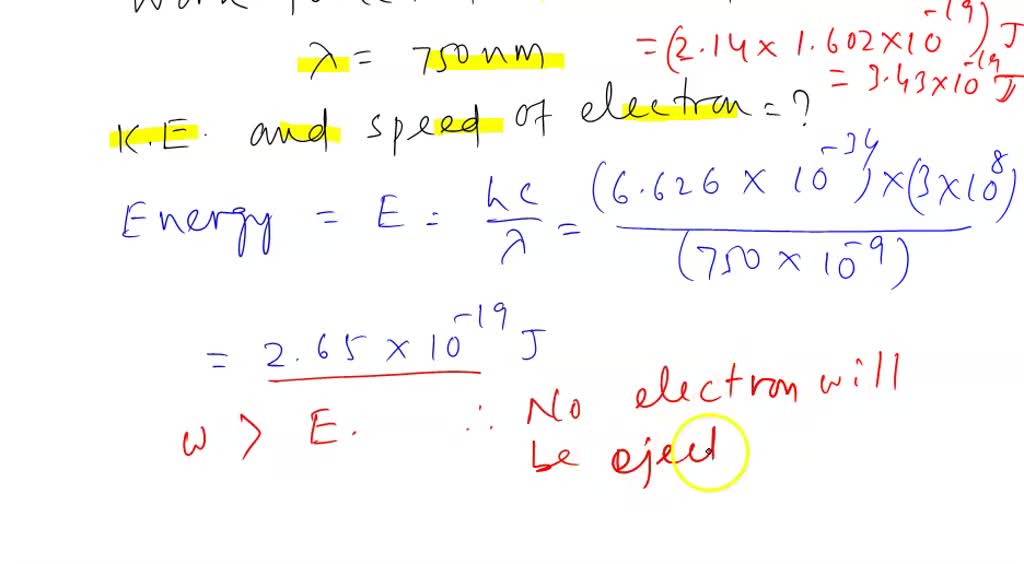 λ = 750 nm
= (2.14 × 1.602 × 10⁻¹⁹) J
= 3.43×10⁻¹⁹ J
K.E. and speed of electron = ?
Energy = E = hc/λ = (6.626 × 10⁻³⁴) × (3×10⁸) / (750 × 10⁻⁹)
= 2.65 × 10⁻¹⁹ J
w > E. ∴ No electron will
be eject